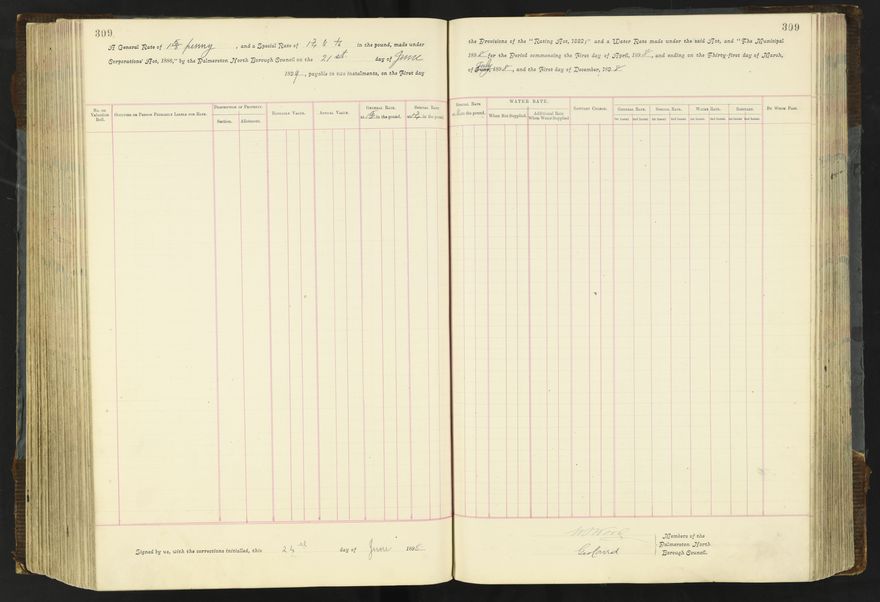 309
A General Rate of penny, and a Special Rate of in the pound, made under
Corporations' Act, 1886," by the Palmerston North Borough Council on the 21st day of June
189, payable in two instalments, on the First day
No. on Valuation Roll.
Occupier or Person Primarily Liable for Rate.
Description of Property.
Section.
Allotment.
Rateable Value.
Annual Value.
General Rate.
at in the pound.
Special Rate
at in the pound
Signed by us, with the corrections initialled, this 24 day of June 1898
309
the Provisions of the "Rating Act, 1882;" and a Water Rate made under the said Act, and "The Municipal
1898 for the Period commencing the First day of April, 1898, and ending on the Thirty-first day of March,
of July 1898, and the First day of December, 1898
Special Rate
at in the pound.
WATER RATE.
When Not Supplied.
Additional Rate When Water Supplied
Sanitary Charge.
General Rate.
1st Instmt. 2nd Instmt.
Special Rate.
1st Instmt. 2nd Instmt.
Water Rate.
1st Instmt. 2nd Instmt.
Sanitary.
1st Instmt. 2nd Instmt.
By Whom Paid.
Members of the
Palmerston North
Borough Council.